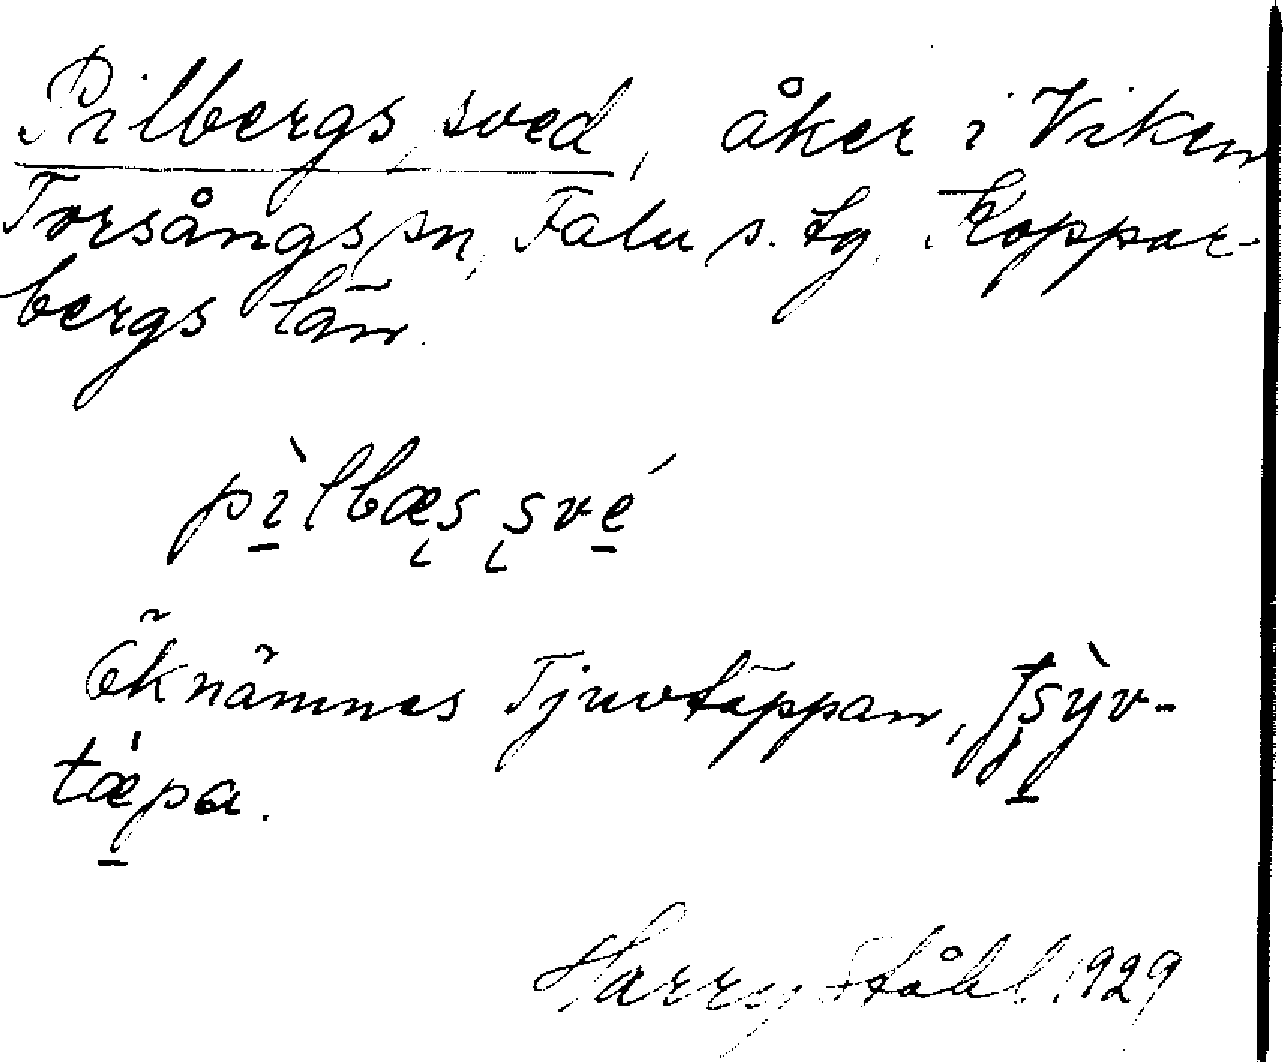 Pilbergs sved, åker i Viken
Torsångs sn, Falu s. tg, Koppar-
bergs län.
pì̱lbæʂ ʂvé̱
Öknämnes Tjuvtäppan, tʂỳ̱v-
tæ̱̀pa.
Harry Ståhl 1929